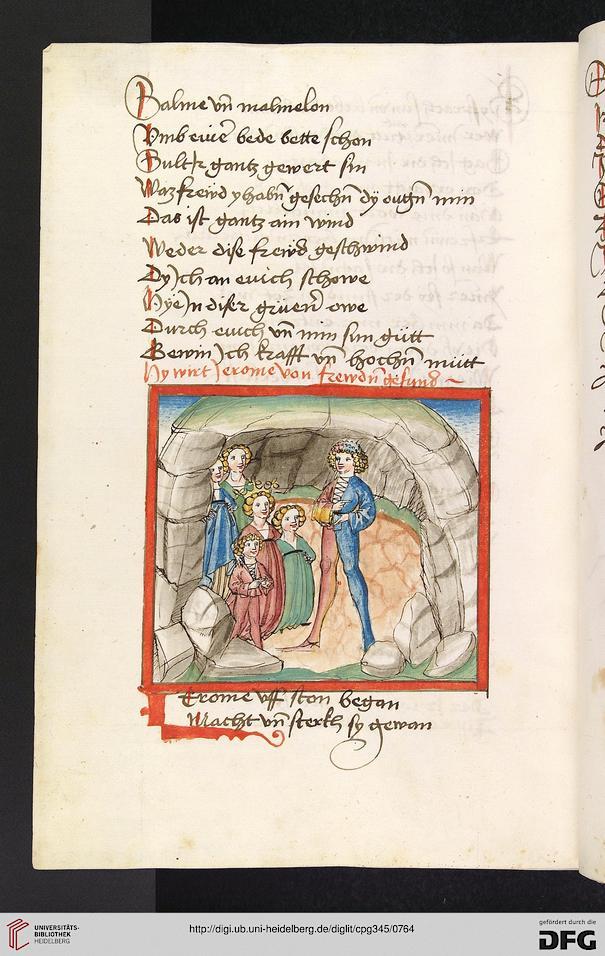 Palme vn̄ malmelon
Vmb euwer bede bette schon
Sult Ir gantz gewert sin
Waz frewd y habn̄ gesechn̄ dÿ ougn̄ min
Das ist gantz ain wind
Weder dise frewd geschwind
Dy Ich an euich schowe
Hÿe In diser grüenen owe
Durch euich vn̄ min sun gütt
Gewin Ich krafft vn̄ hochn̄ mütt
Hy wirt Jerome von frewdn̄ gesund ~
Jerome vff ston began
Macht vn̄ sterkh sy gewan
UNIVERSITÄTS-
BIBLIOTHEK
HEIDELBERG
http://digi.ub.uni-heidelberg.de/diglit/cpg345/0764
gefördert durch die
DFG